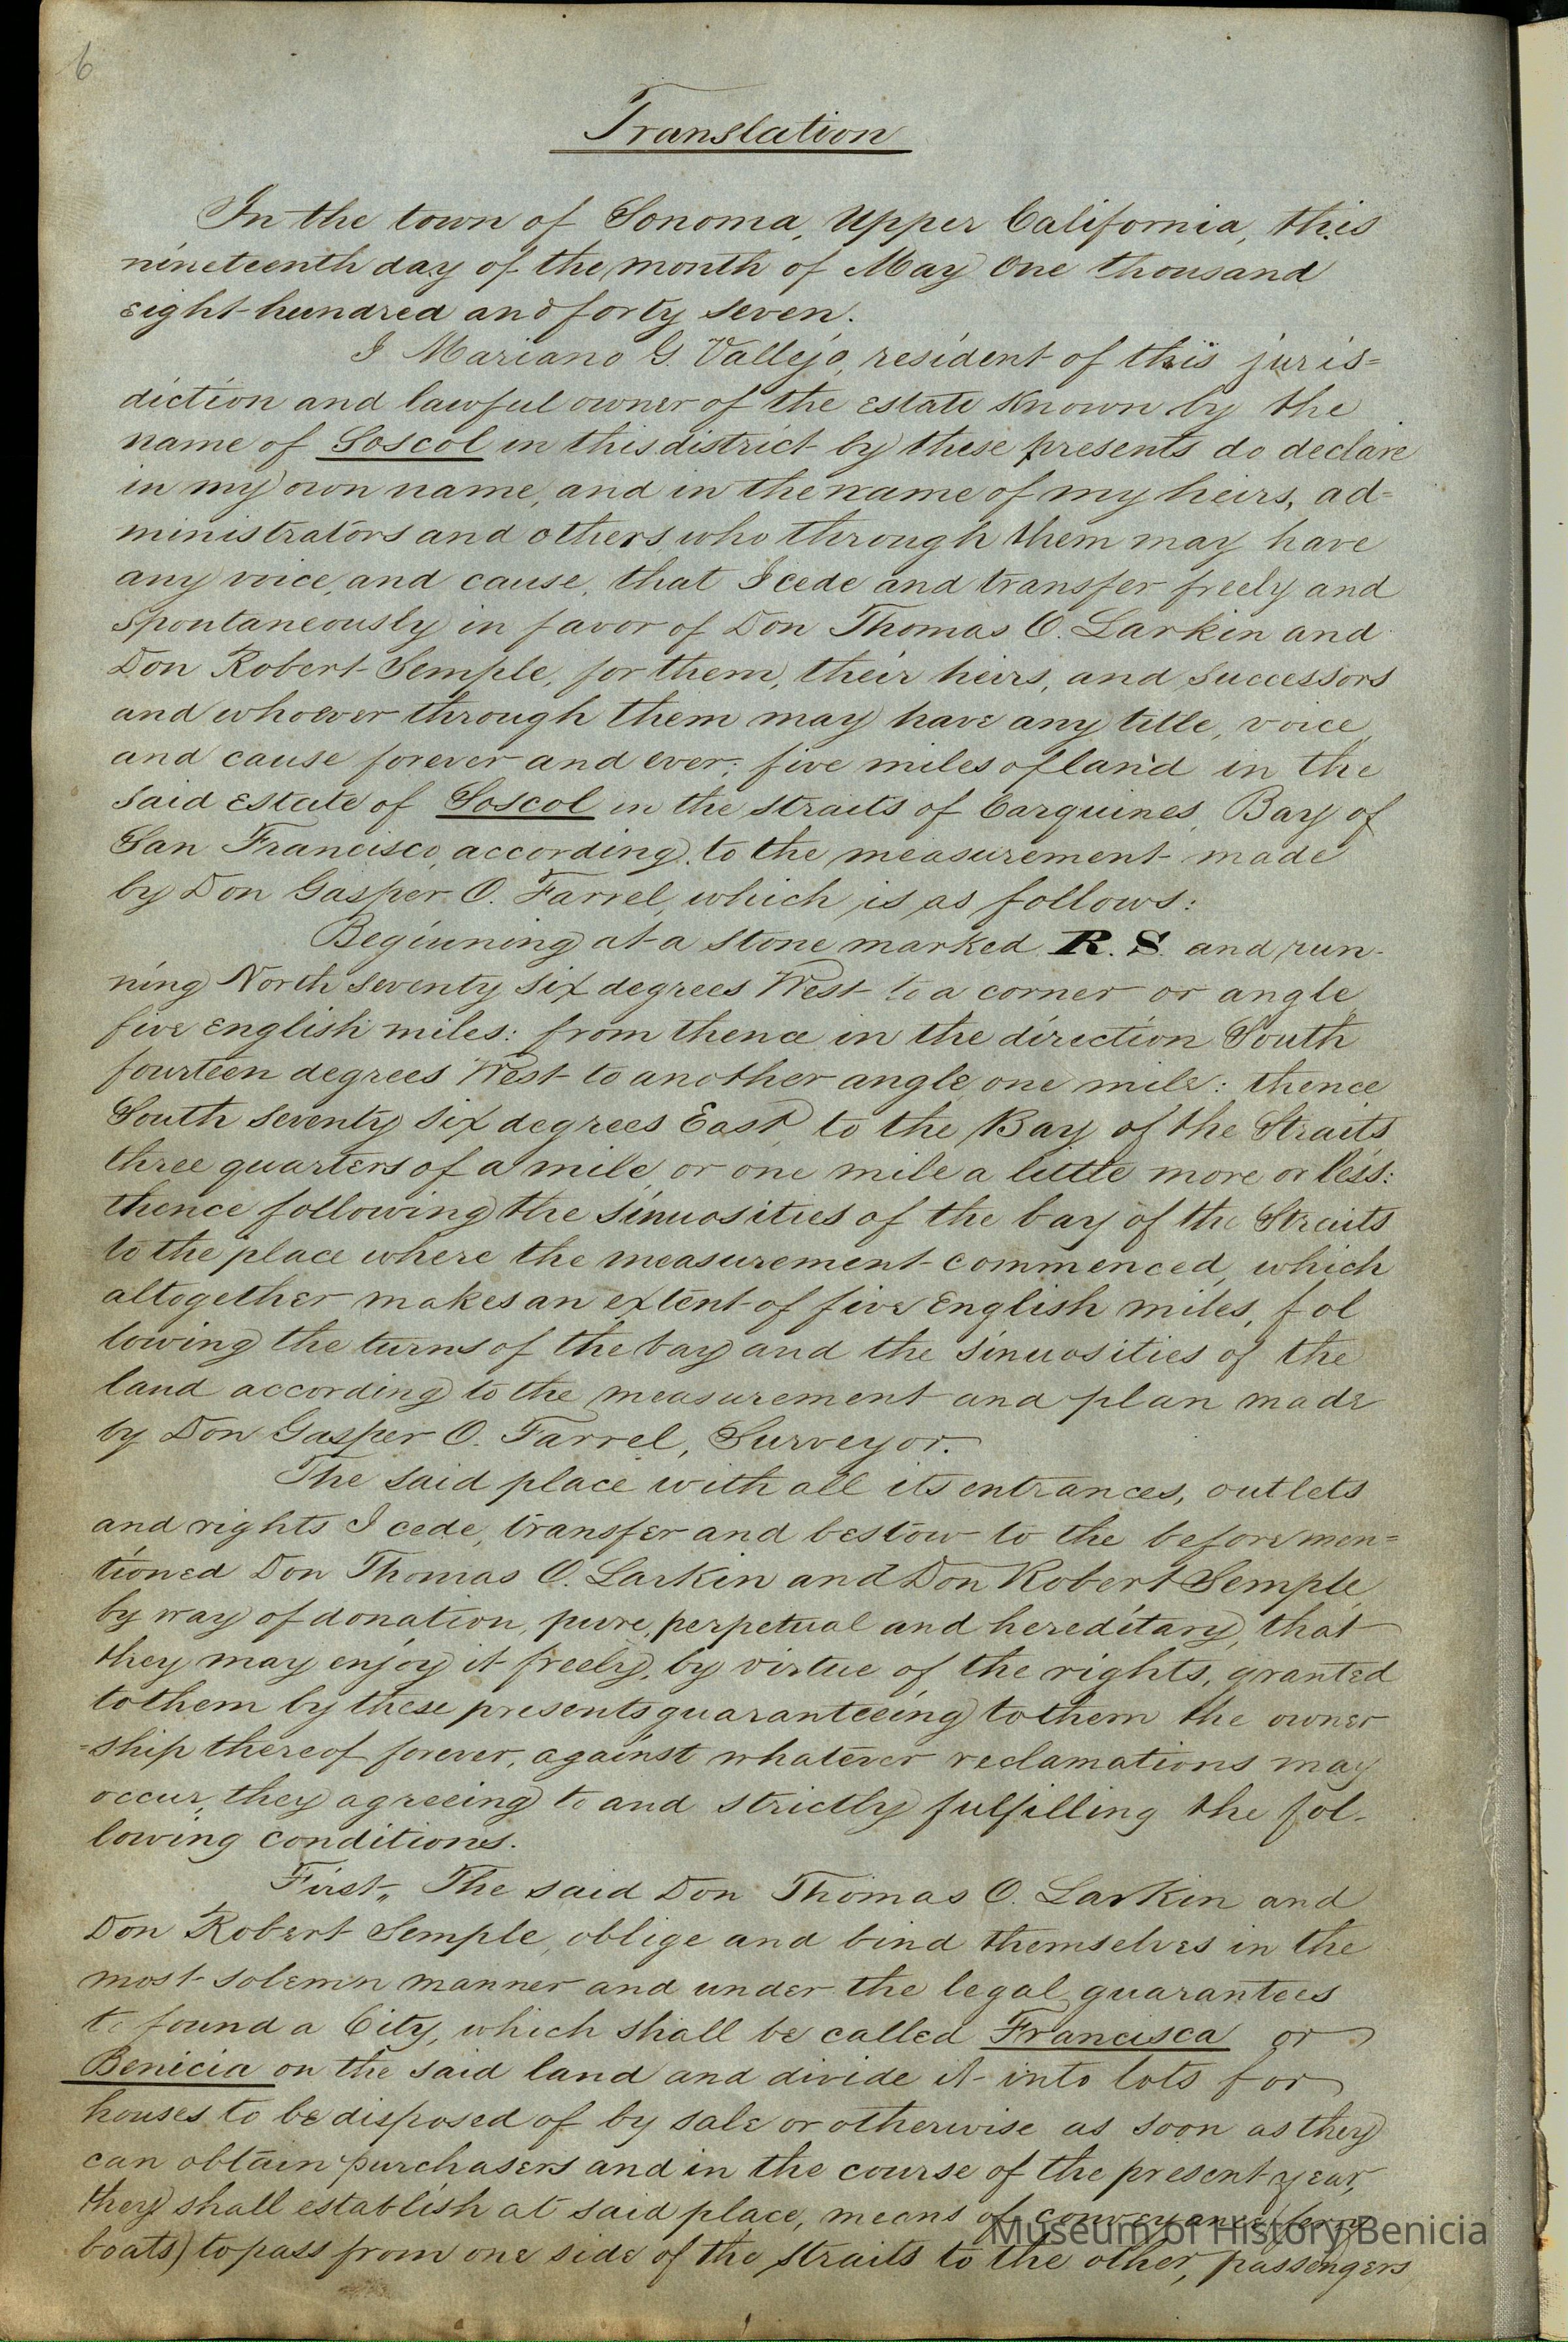 6
Translation
In the town of Sonoma, Upper California, this
nineteenth day of the month of May One thousand
eight hundred and forty seven.
I Mariano G. Vallejo, resident of this juris=
diction and lawful owner of the estate known by the
name of Soscol in this district by these presents do declare
in my own name, and in the name of my heirs, ad=
ministrators and others who through them may have
any voice, and cause, that I cede and transfer freely and
spontaneously in favor of Don Thomas O. Larkin and
Don Robert Semple, for them, their heirs, and successors
and whoever through them may have any title, voice
and cause forever and ever; five miles of land in the
said estate of Soscol in the straits of Carquines, Bay of
San Francisco, according to the measurement made
by Don Gasper O. Farrel, which is as follows:
Beginning at a stone marked R. S. and run-
ning North seventy six degrees West to a corner or angle
five English miles: from thence in the direction South
fourteen degrees West to another angle one mile: thence
South seventy six degrees East to the Bay of the Straits
three quarters of a mile, or one mile a little more or less:
thence following the sinuosities of the bay of the Straits
to the place where the measurement commenced, which
altogether makes an extent of five English miles, fol
lowing the turns of the bay and the sinuosities of the
land according to the measurement and plan made
by Don Gasper O. Farrel, Surveyor.
The said place with all its entrances, outlets
and rights I cede, transfer and bestow to the before men=
tioned Don Thomas O. Larkin and Don Robert Semple
by way of donation, pure, perpetual and hereditary, that
they may enjoy it freely, by virtue of the rights, granted
to them by these presents guaranteeing to them the owner
=ship thereof forever, against whatever reclamations may
occur, they agreeing to and strictly fulfilling the fol-
lowing conditions.
First,, The said Don Thomas O. Larkin and
Don Robert Semple, oblige and bind themselves in the
most solemn manner and under the legal guarantees
to found a City, which shall be called Francisca or
Benicia on the said land and divide it into lots for
houses to be disposed of by sale or otherwise as soon as they
can obtain purchasers and in the course of the present year,
they shall establish at said place, means of conveyance (ferry
boats) to pass from one side of the straits to the other, passengers
Museum of History Benicia